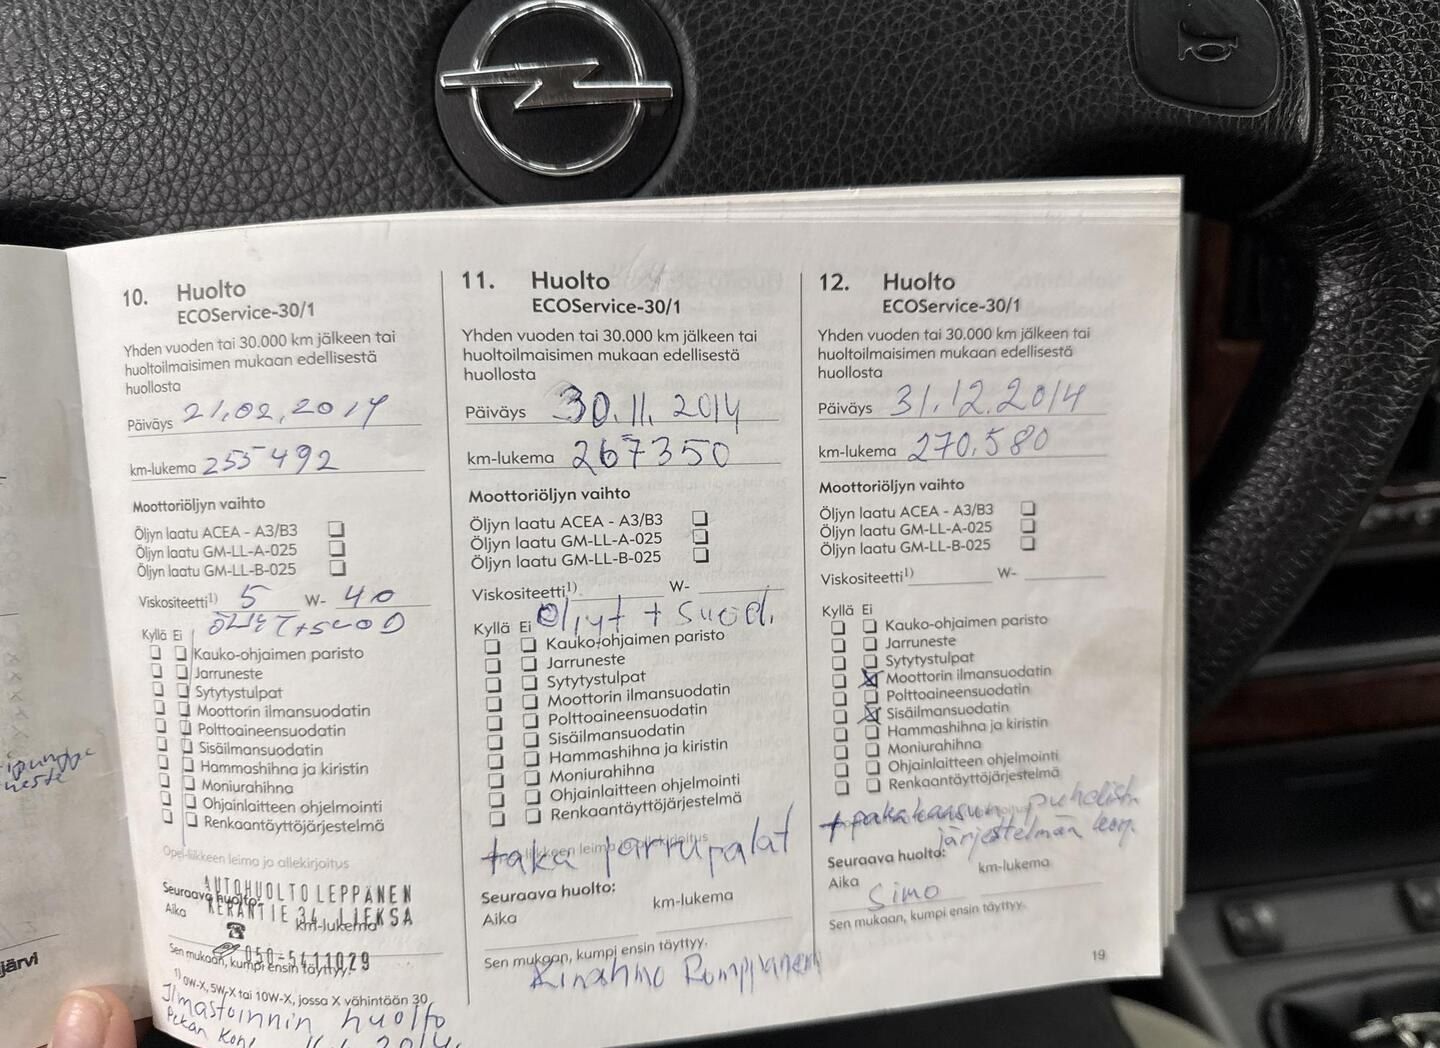 10. Huolto
ECOService-30/1
Yhden vuoden tai 30.000 km jälkeen tai
huoltoilmaisimen mukaan edellisestä
huollosta
Päiväys 21.02.2014
km-lukema 255492
Moottoriöljyn vaihto
Öljyn laatu ACEA - A3/B3
Öljyn laatu GM-LL-A-025
Öljyn laatu GM-LL-B-025
Viskositeetti¹⁾ 5 W- 40
ÖLJYT+SUOD
Kyllä Ei
Kauko-ohjaimen paristo
Jarruneste
Sytytystulpat
Moottorin ilmansuodatin
Polttoaineensuodatin
Sisäilmansuodatin
Hammashihna ja kiristin
Moniurahihna
Ohjainlaitteen ohjelmointi
Renkaantäyttöjärjestelmä
Opel-liikkeen leima ja allekirjoitus
AUTOHUOLTO LEPPÄNEN
Seuraava huolto:
KERANTIE 34 LIEKSA
Aika km-lukema
050-5411029
Sen mukaan, kumpi ensin täyttyy.
¹⁾ 0W-X, 5W-X tai 10W-X, jossa X vähintään 30
Ilmastoinnin huolto
11. Huolto
ECOService-30/1
Yhden vuoden tai 30.000 km jälkeen tai
huoltoilmaisimen mukaan edellisestä
huollosta
Päiväys 30.11.2014
km-lukema 267350
Moottoriöljyn vaihto
Öljyn laatu ACEA - A3/B3
Öljyn laatu GM-LL-A-025
Öljyn laatu GM-LL-B-025
Viskositeetti¹⁾ W-
Öljyt + suod.
Kyllä Ei
Kauko-ohjaimen paristo
Jarruneste
Sytytystulpat
Moottorin ilmansuodatin
Polttoaineensuodatin
Sisäilmansuodatin
Hammashihna ja kiristin
Moniurahihna
Ohjainlaitteen ohjelmointi
Renkaantäyttöjärjestelmä
taka jarrupalat
Seuraava huolto:
Aika km-lukema
Sen mukaan, kumpi ensin täyttyy.
Romppanen
12. Huolto
ECOService-30/1
Yhden vuoden tai 30.000 km jälkeen tai
huoltoilmaisimen mukaan edellisestä
huollosta
Päiväys 31.12.2014
km-lukema 270.580
Moottoriöljyn vaihto
Öljyn laatu ACEA - A3/B3
Öljyn laatu GM-LL-A-025
Öljyn laatu GM-LL-B-025
Viskositeetti¹⁾ W-
Kyllä Ei
Kauko-ohjaimen paristo
Jarruneste
Sytytystulpat
Moottorin ilmansuodatin
Polttoaineensuodatin
Sisäilmansuodatin
Hammashihna ja kiristin
Moniurahihna
Ohjainlaitteen ohjelmointi
Renkaantäyttöjärjestelmä
+ pakokaasun puhdist.
järjestelmän korj.
Seuraava huolto:
Aika km-lukema
Simo
Sen mukaan, kumpi ensin täyttyy.
19